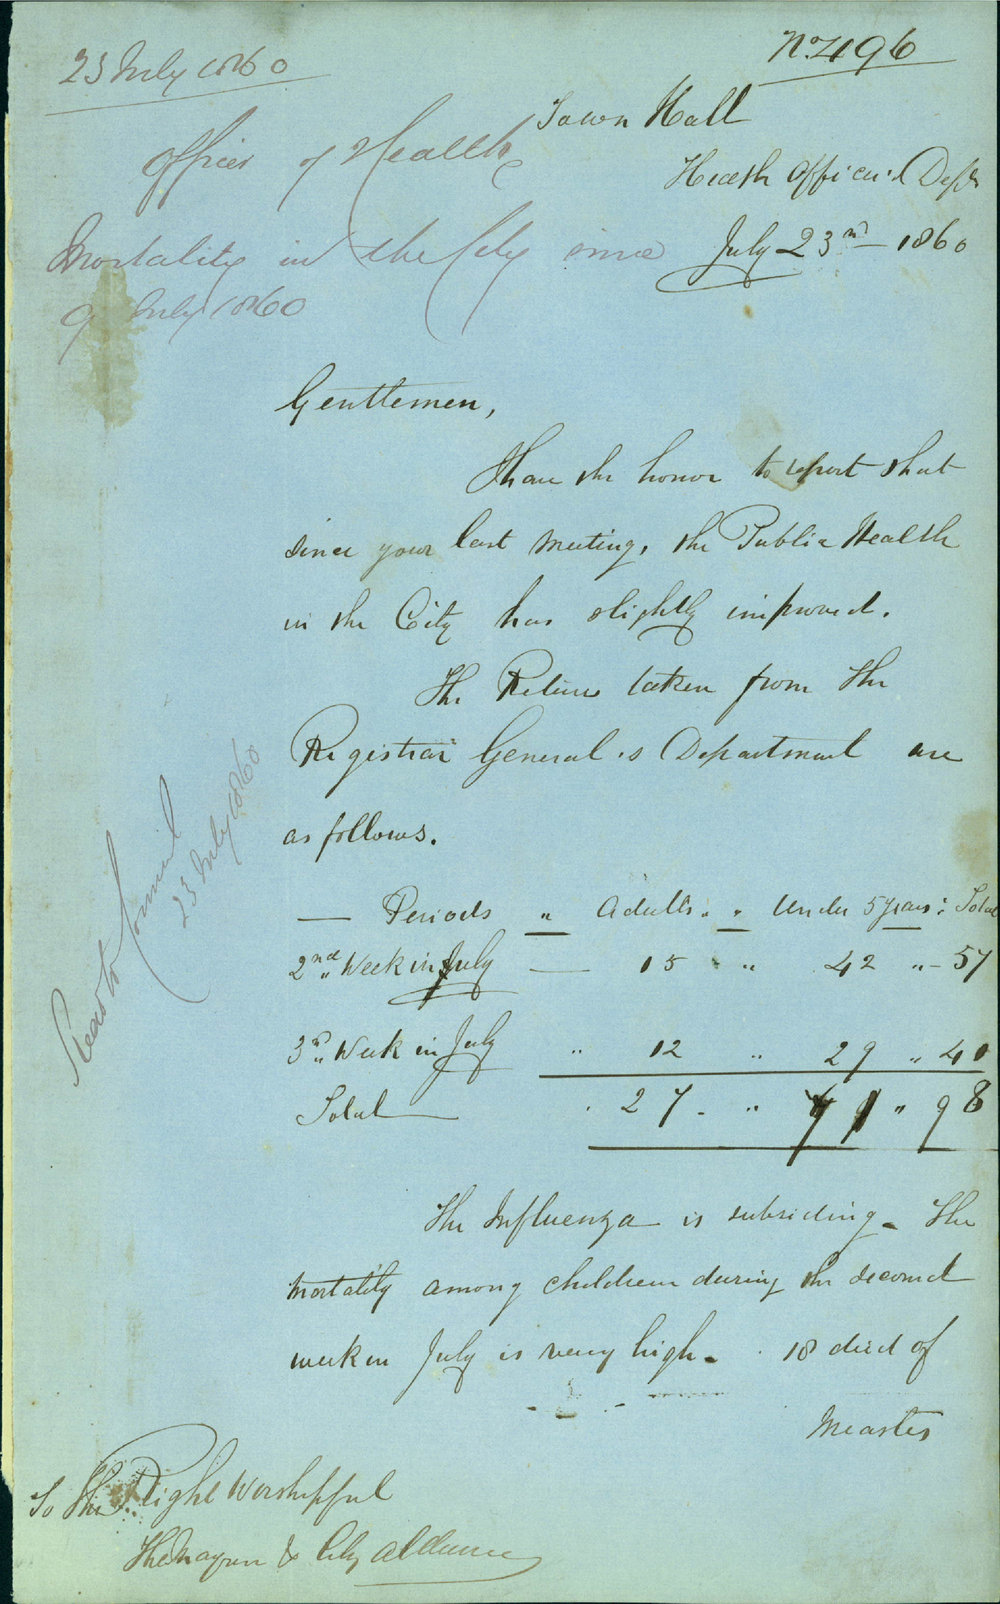 23 July 1860
No. 496
Town Hall
Officer of Health
Health Officer's Dept
Mortality in the City since
July 23rd 1860
9 July 1860
Gentlemen,
I have the honor to report that
since your last meeting, the Public Health
in the City has slightly improved.
The Returns taken from the
Registrar General's Department are
as follows.
— Periods " Adults. " Under 5 years: Total
2nd Week in July — 15 " 42 " – 57
3rd Week in July " 12 " 29 " 41
Total — 27 - " 71 " 98
The Influenza is subsiding - The
mortality among children during the second
week in July is very high - 18 died of
Measles
Read to Council
23 July 1860
To The Right Worshipful
The Mayor & City Aldermen